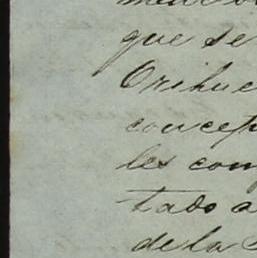 que se
Orihue
concep
les com
tado a
de la S